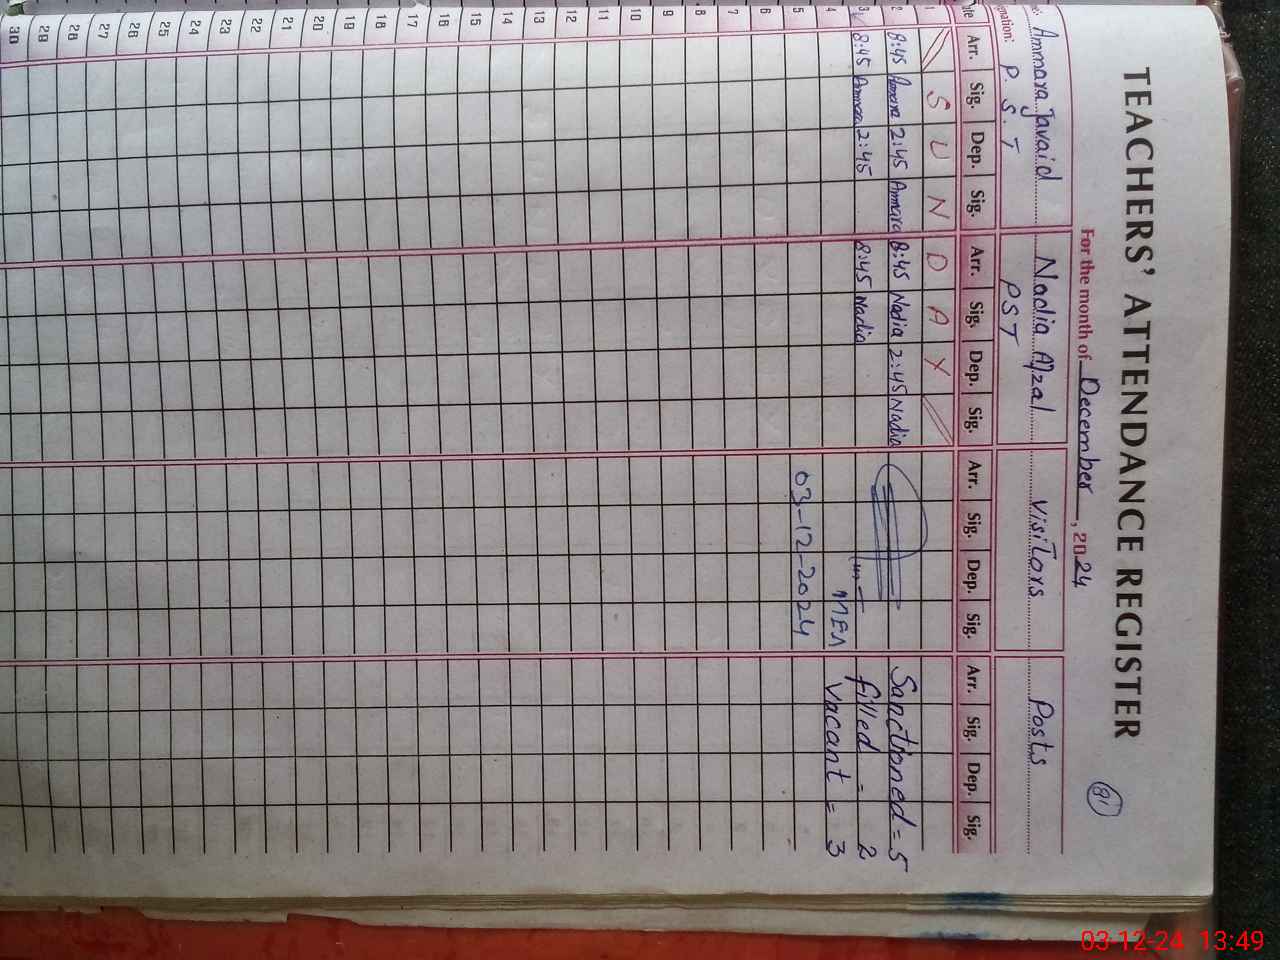 TEACHERS' ATTENDANCE REGISTER
81
For the month of December, 2024
Ammara Javaid Nadia Afzal Visitors Posts
P.S.T PST
Arr. Sig. Dep. Sig. Arr. Sig. Dep. Sig. Arr. Sig. Dep. Sig. Arr. Sig. Dep. Sig.
1 S U N D A Y
2 8:45 Ammara 2:45 Ammara 8:45 Nadia 2:45 Nadia Sanctioned = 5
3 8:45 Ammara 2:45 8:45 Nadia filled = 2
4 MEA Vacant = 3
5 03-12-2024
6
7
8
9
10
11
12
13
14
15
16
17
18
19
20
21
22
23
24
25
26
27
28
29
30
03-12-24 13:49